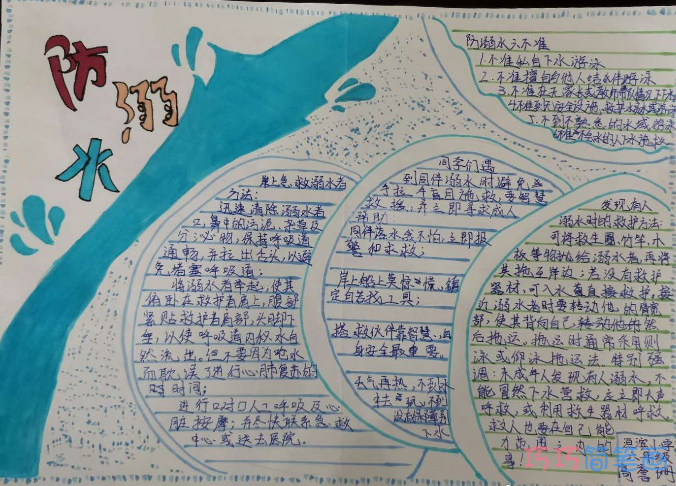 防溺水
防溺水六不准
1.不准私自下水游泳
2.不准擅自与他人结伴游泳
3.不准在无家长或教师带队情况下下水
5.不到不熟悉的水域游泳
6.不准不会水的人下水施救
岸上急救溺水者
方法:
迅速清除溺水者
口、鼻中的污泥、杂草及
分泌物,保持呼吸道
通畅,并拉出舌头,以避
免堵塞呼吸道;
将溺水者举起,使其
俯卧在救护者肩上,腹部
紧贴救护者肩部,头脚下
垂,以使呼吸道内积水自
然流出,但不要因为呛水
而耽误了进行心肺复苏的
时间;
进行口对口人工呼吸及心
脏按摩;并尽快联系急救
中心或送去医院。
同学们遇
到同伴溺水时避免
手拉手盲目施救,要智慧
救援,并立即寻求成人
帮助
同伴落水我不怕,立即报
警和求救;
岸上船上莫惊慌,镇
定自若找工具;
搭救伙伴靠智慧,自
身安全最重要。
天气再热,不到水
下水
发现有人
溺水时的救护方法:
可将救生圈、竹竿、木
板等物抛给溺水者,再将
其拖至岸边;若没有救护
器材,可入水直接救护,接
近溺水者时要转动他的髋
部,使其背向自己,然后
后拖运。拖运时通常采用侧
泳或仰泳拖运法,特别强
调:未成年人发现有人溺水,不
能冒然下水营救,应立即大声
呼救,或利用救生器材呼救
救人也要在自己能
力范围之内的
六年级
巧巧简笔画